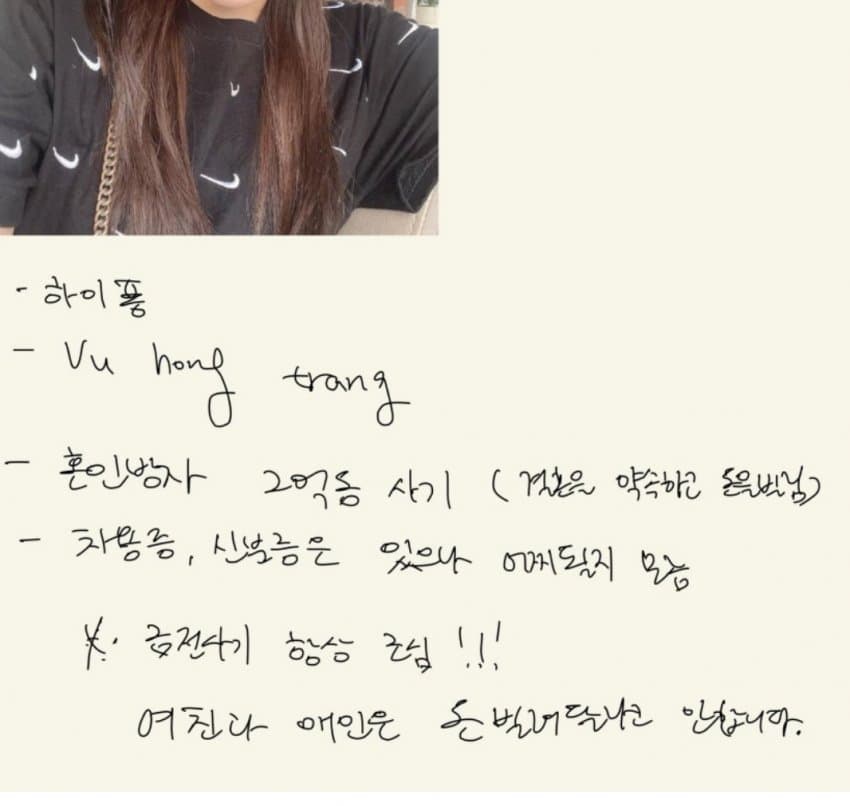 - 하이퐁
- Vu hong trang
- 혼인빙자 2억동 사기 (결혼은 약속하고 돈을 빌림)
- 차용증, 신분증은 있으나 어찌될지 모름
※. 금전사기 항상 조심!!!
여친다 애인은 돈 빌려달라고 안합니다.